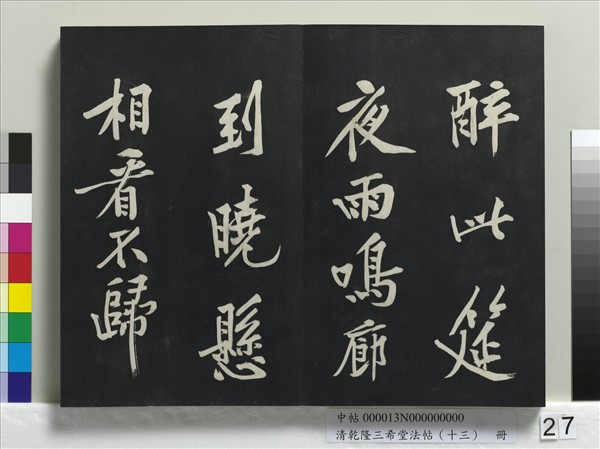 醉此筵
夜雨鳴廊
到曉懸
相看不歸
中帖 000013N000000000
清乾隆三希堂法帖（十三） 冊
27